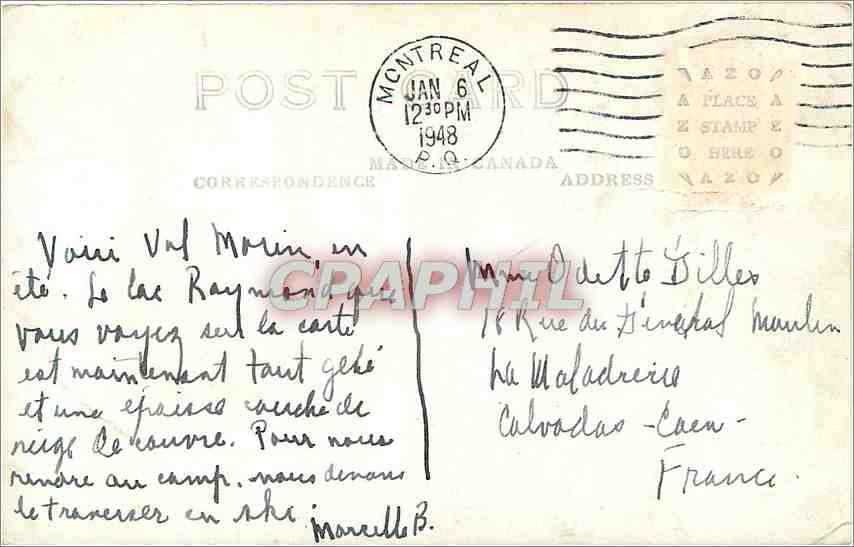 POST CARD
MONTREAL
JAN 6
12 30 PM
1948
P.Q.
MADE IN CANADA
CORRESPONDENCE
ADDRESS
AZO
A PLACE A
Z STAMP Z
O HERE O
AZO
CPAPHIL
Voici Val Morin, en
été. Le lac Raymond que
vous voyez sur la carte
est maintenant tout gelé
et une épaisse couche de
neige le couvre. Pour nous
rendre au camp, nous devons
le traverser en ski.
Marcelle B.
Mme Odette Gilles
18 Rue du Général Moulin
La Maladrerie
Calvados - Caen -
France.